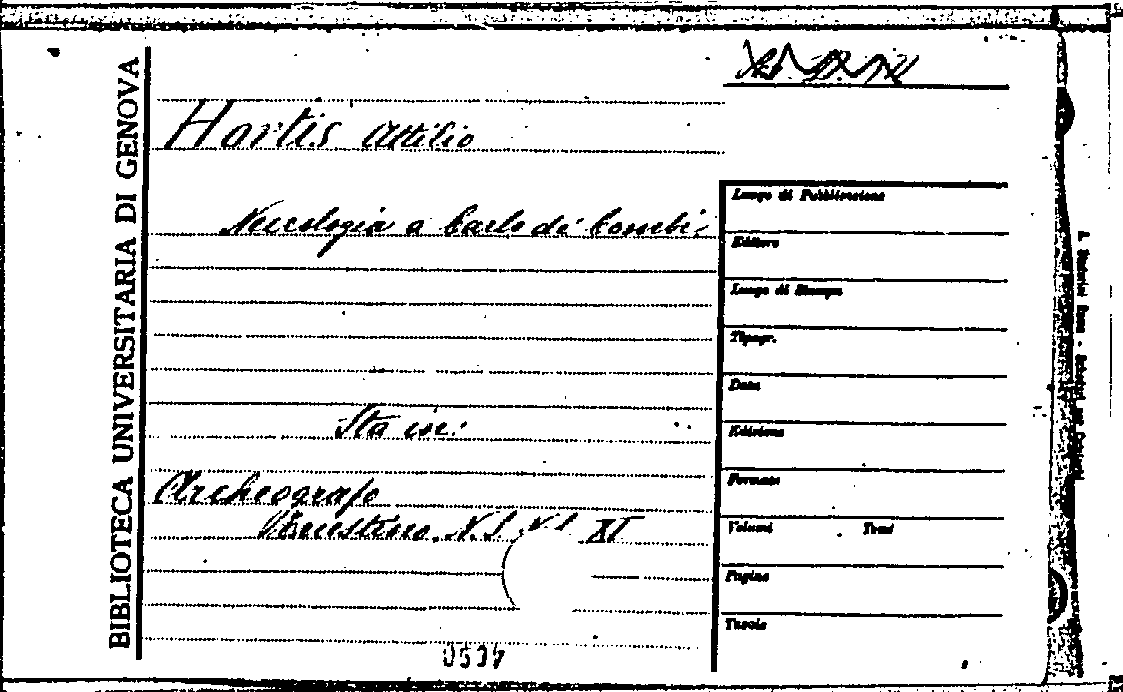 BIBLIOTECA UNIVERSITARIA DI GENOVA
Hortis Attilio
Necrologia a Carlo di Combi
Sta in:
Archeografo
Triestino. N.S. XI
Luogo di Pubblicazione
Editore
Luogo di Stampa
Tipogr.
Data
Edizione
Formato
Volumi Tomi
Pagine
Tavole